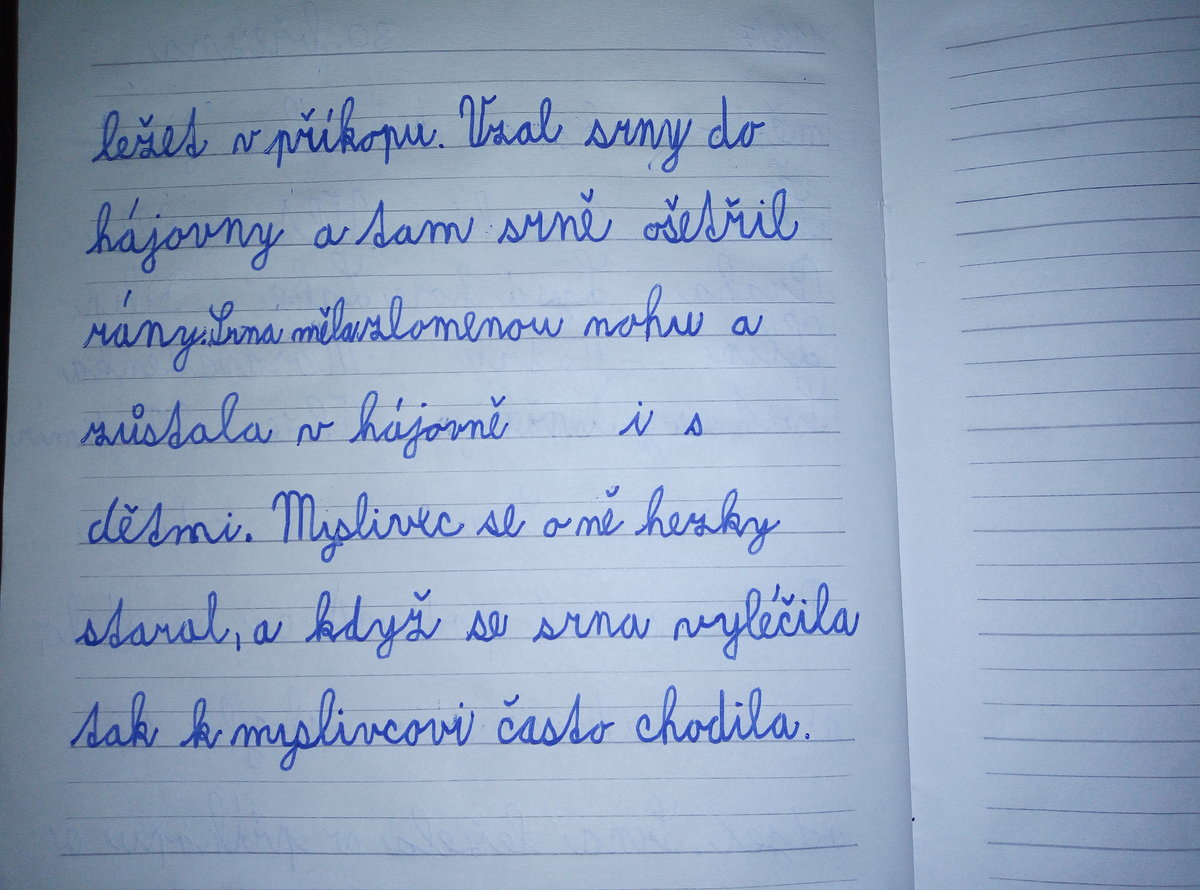 ležet v příkopu. Vzal srny do
hájovny a tam srně ošetřil
rány. Srna měla zlomenou nohu a
zůstala v hájovně i s
dětmi. Myslivec se o ně hezky
staral, a když se srna vyléčila
tak k myslivcovi často chodila.